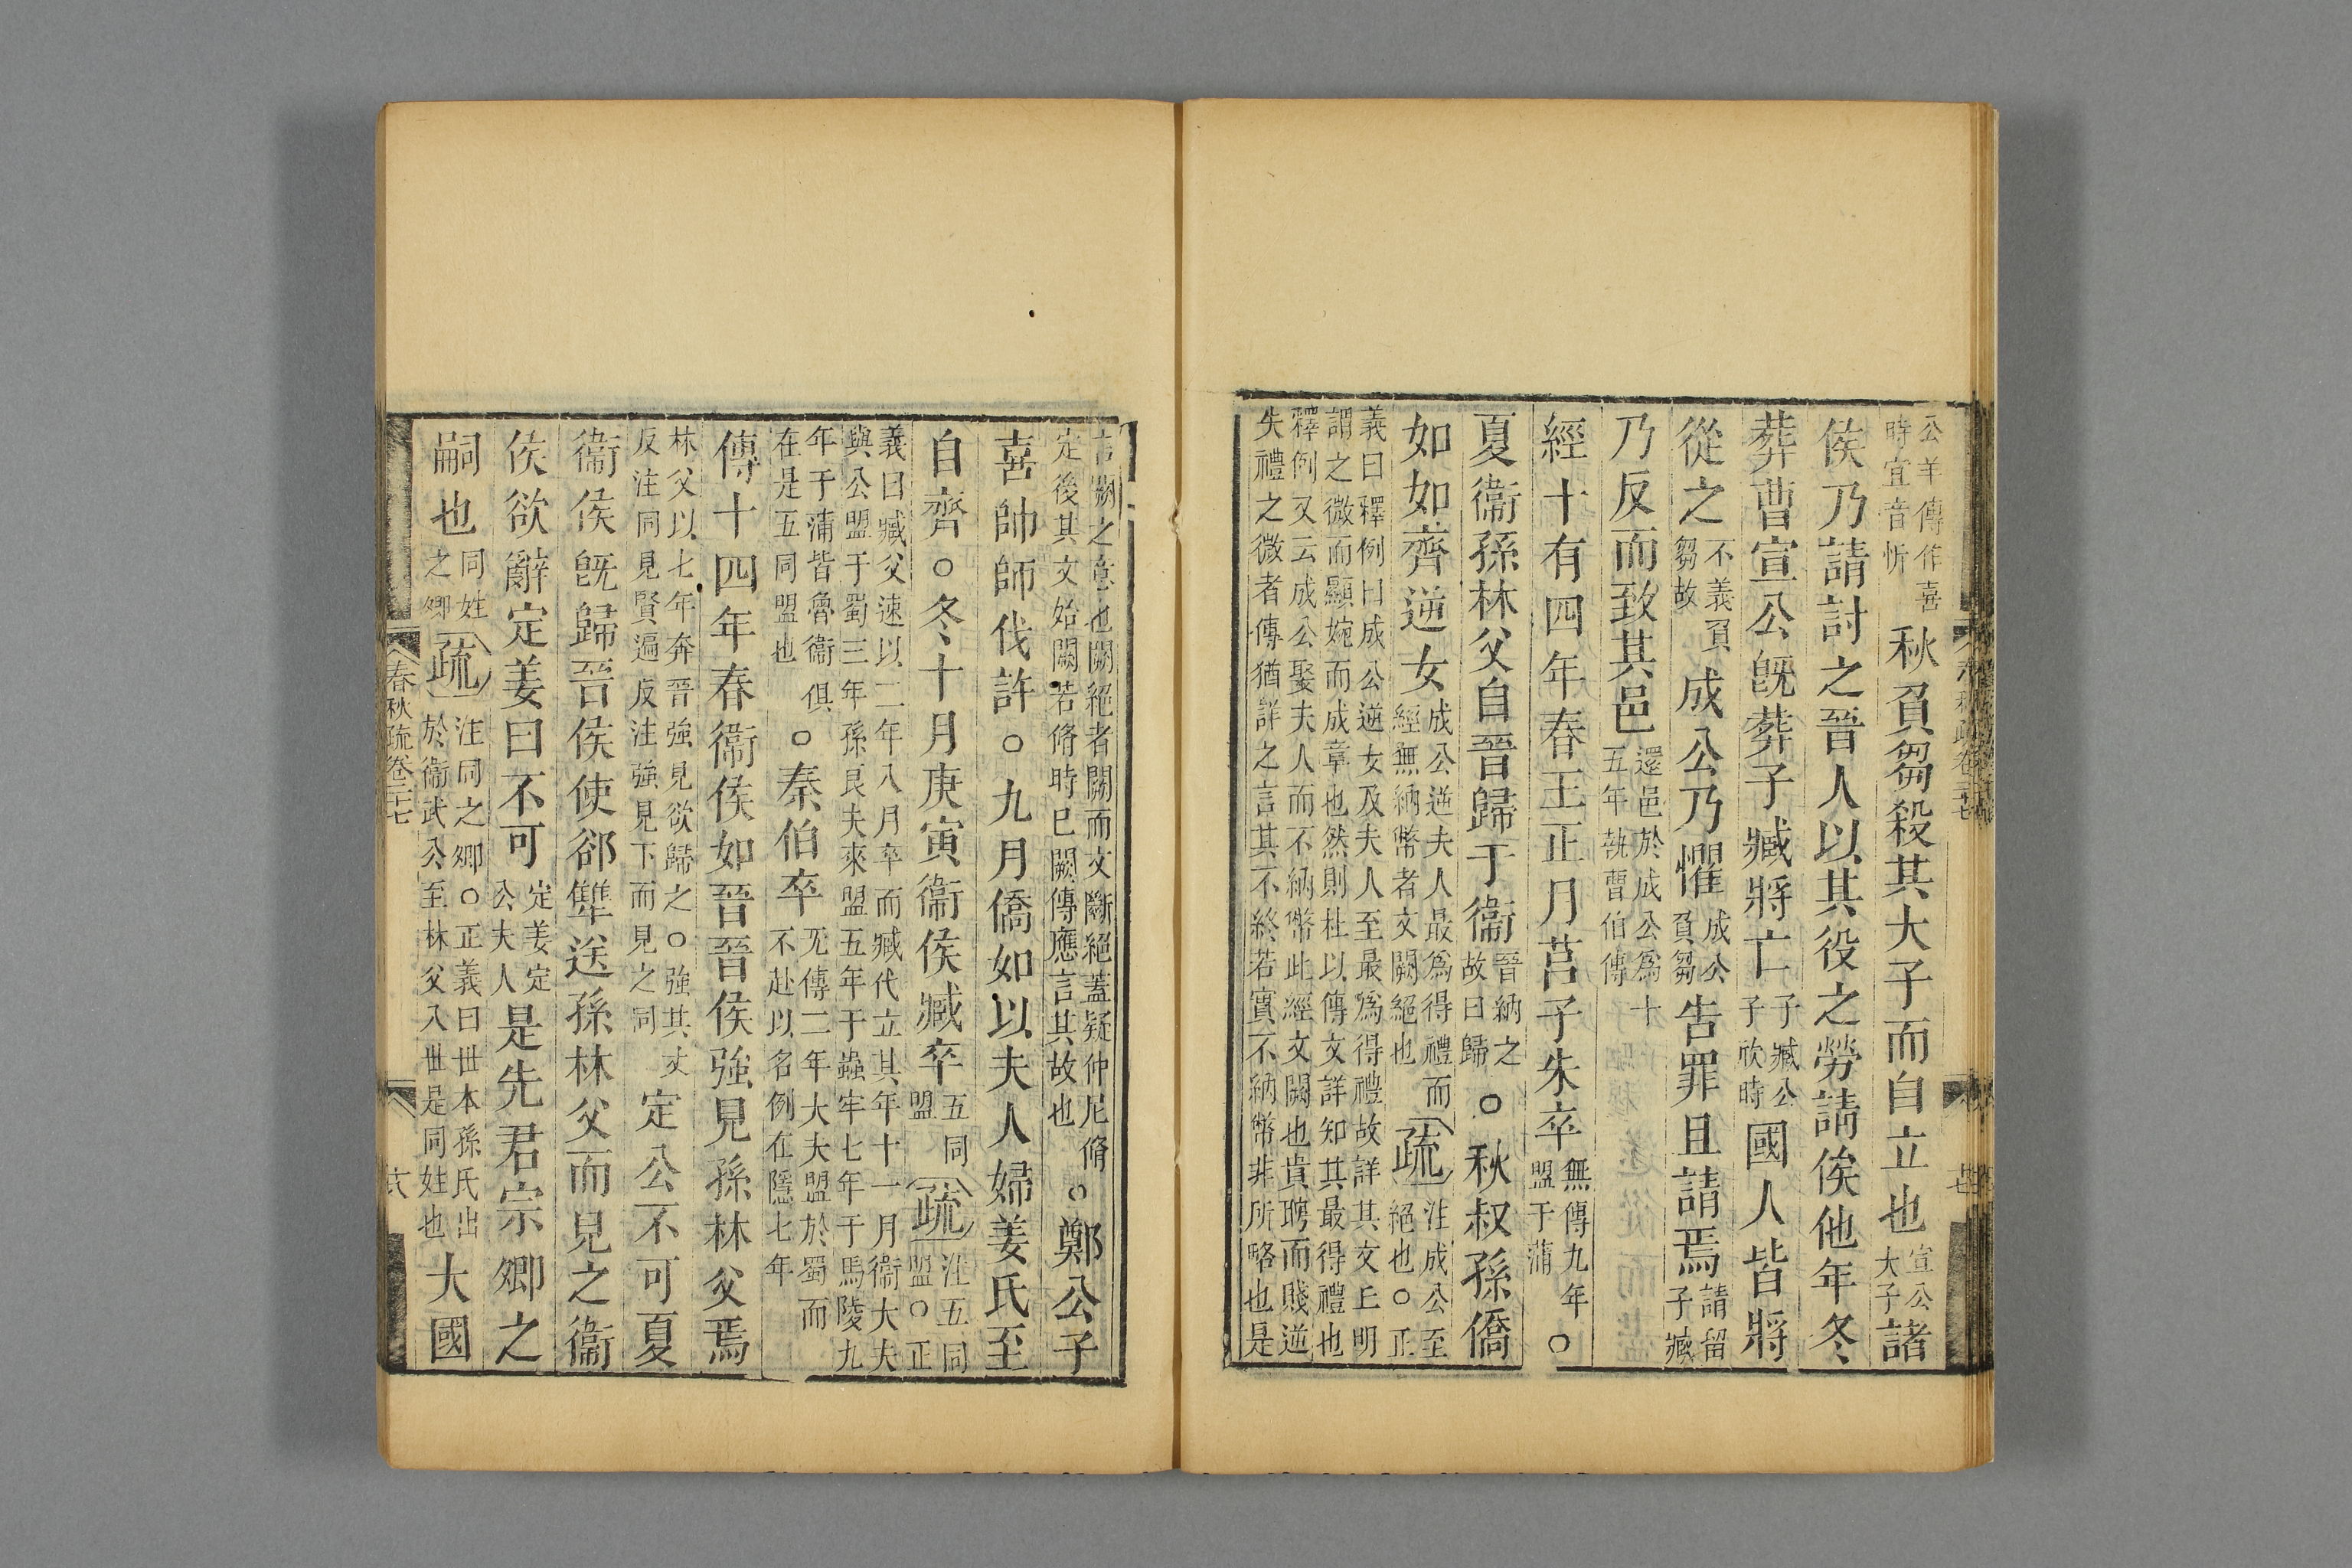 公羊傳作喜
時宜音忻
秋負芻殺其大子而自立也
宣公
大子
諸
侯乃請討之晉人以其役之勞請俟他年冬
葬曹宣公旣葬子臧將亡
子臧公
子欣時
國人皆將
從之
不義負
芻故
成公乃懼
成公
負芻
告罪且請焉
請留
子臧
乃反而致其邑
還邑於成公爲十
五年執曹伯傳
經十有四年春王正月莒子朱卒
無傳九年
盟于蒲
○
夏衞孫林父自晉歸于衞
晉納之
故曰歸
○秋叔孫僑
如如齊逆女
成公逆夫人最爲得禮而
經無納幣者文闕絕也
疏
注成公至
絕也○正
義曰釋例曰成公逆女及夫人至最爲得禮故詳其文上明
謂之微而顯婉而成章也然則杜以傳文詳知其最得禮也
釋例又云成公娶夫人而不納幣此經文闕也貴聘而賤逆
失禮之微者傳猶詳之言其不終若實不納幣非所略也是
言闕之意也闕絕者闕而文斷絕蓋疑仲尼脩
定後其文始闕若脩時已闕傳應言其故也
○鄭公子
喜帥師伐許○九月僑如以夫人婦姜氏至
自齊○冬十月庚寅衞侯臧卒
五同
盟
疏
注五同
盟○正
義曰臧父速以二年八月卒而臧代立其年十一月衞大夫
與公盟于蜀三年孫良夫來盟五年于蟲牢七年于馬陵九
年于蒲皆魯衞俱
在是五同盟也
○秦伯卒
无傳二年大夫盟於蜀而
不赴以名例在隱七年
傳十四年春衞侯如晉晉侯強見孫林父焉
林父以七年奔晉強見欲歸之○強其丈
反注同見賢遍反注強見下而見之同
定公不可夏
衞侯旣歸晉侯使郤犨送孫林父而見之衞
侯欲辭定姜曰不可
定姜定
公夫人
是先君宗卿之
嗣也
同姓
之卿
疏
注同之卿○正義曰世本孫氏出
於衞武公至林父八世是同姓也
大國
春秋疏卷二十七